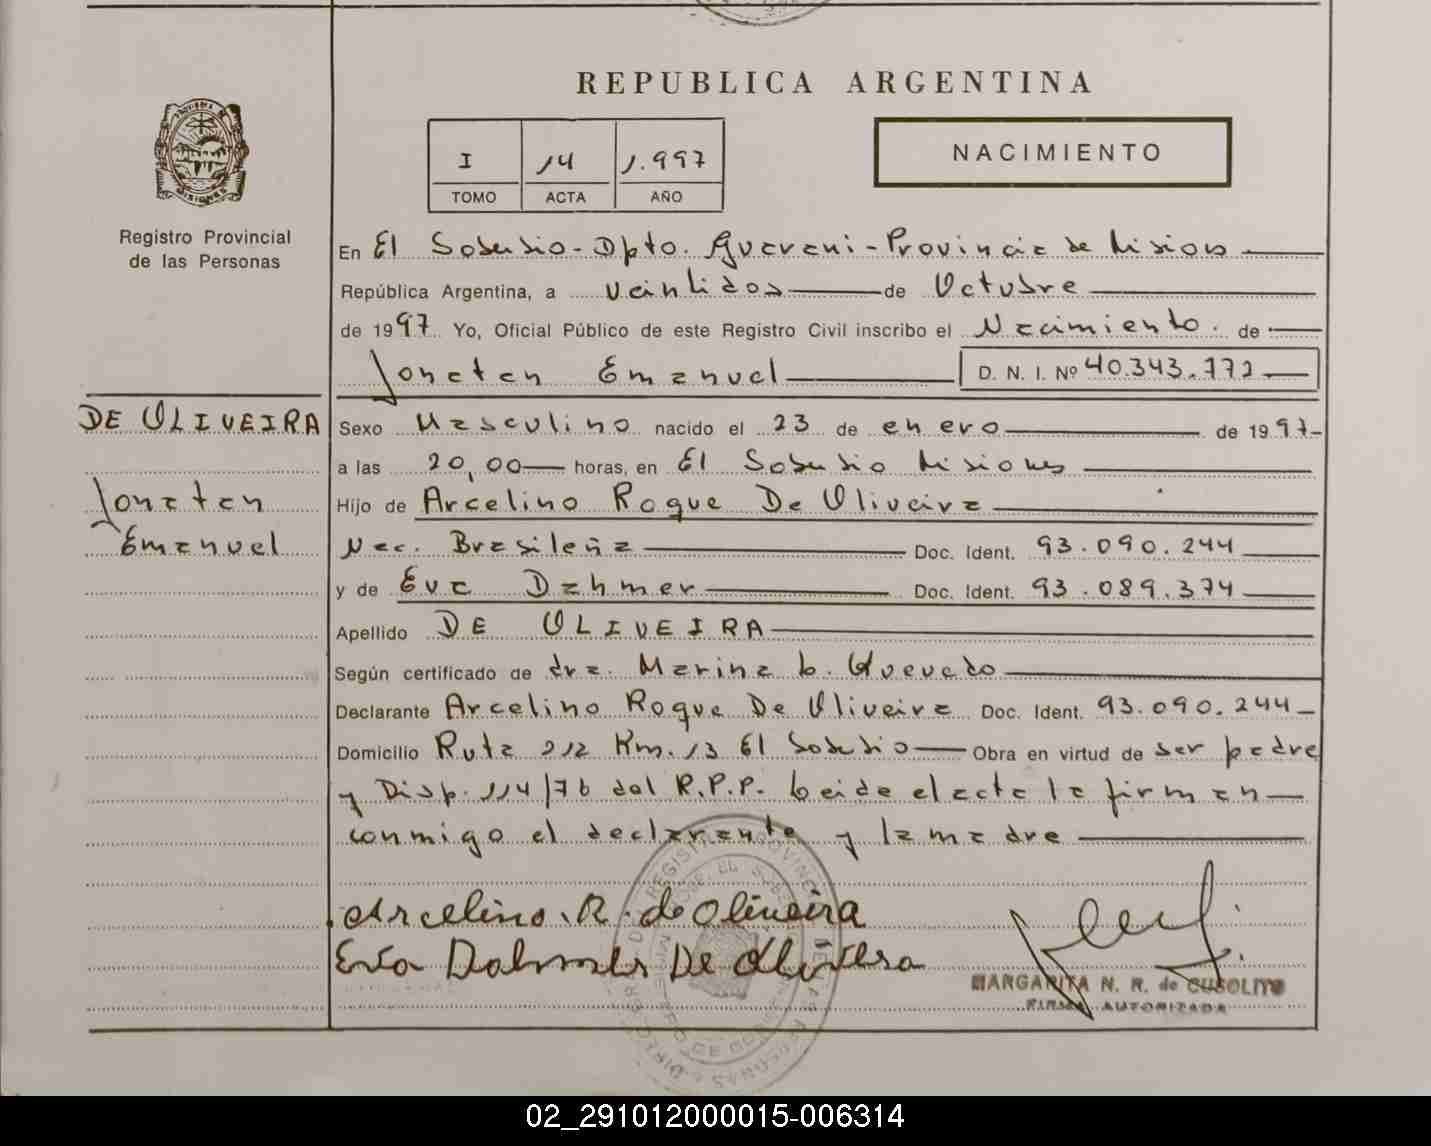 REPUBLICA ARGENTINA
I 14 1.997
TOMO ACTA AÑO
NACIMIENTO
Registro Provincial
de las Personas
En El Soberbio - Dpto. Guarani - Provincia de Misiones
República Argentina, a veintidos de Octubre
de 1997 Yo, Oficial Público de este Registro Civil inscribo el Nacimiento. de
Jonatan Emanuel D. N. I. Nº 40.343.772
DE OLIVEIRA
Jonatan
Emanuel
Sexo Masculino nacido el 23 de enero de 1997-
a las 20,00 horas, en El Soberbio Misiones
Hijo de Arcelino Roque De Oliveira
Nac. Brasileña Doc. Ident. 93.090.244
y de Eva Dahmer Doc. Ident. 93.089.374
Apellido DE OLIVEIRA
Según certificado de dra. Marina L. Quevedo
Declarante Arcelino Roque De Oliveira Doc. Ident. 93.090.244
Domicilio Ruta 212 Km. 13 El Soberbio Obra en virtud de ser padre
y Disp. 114/76 del R.P.P. Leida el acta la firman
conmigo el declarante y la madre
Arcelino. R. de Oliveira
Eva Dahmer De Oliveira
MARGARITA N. R. de CUSOLITO
FIRMA AUTORIZADA
02_291012000015-006314